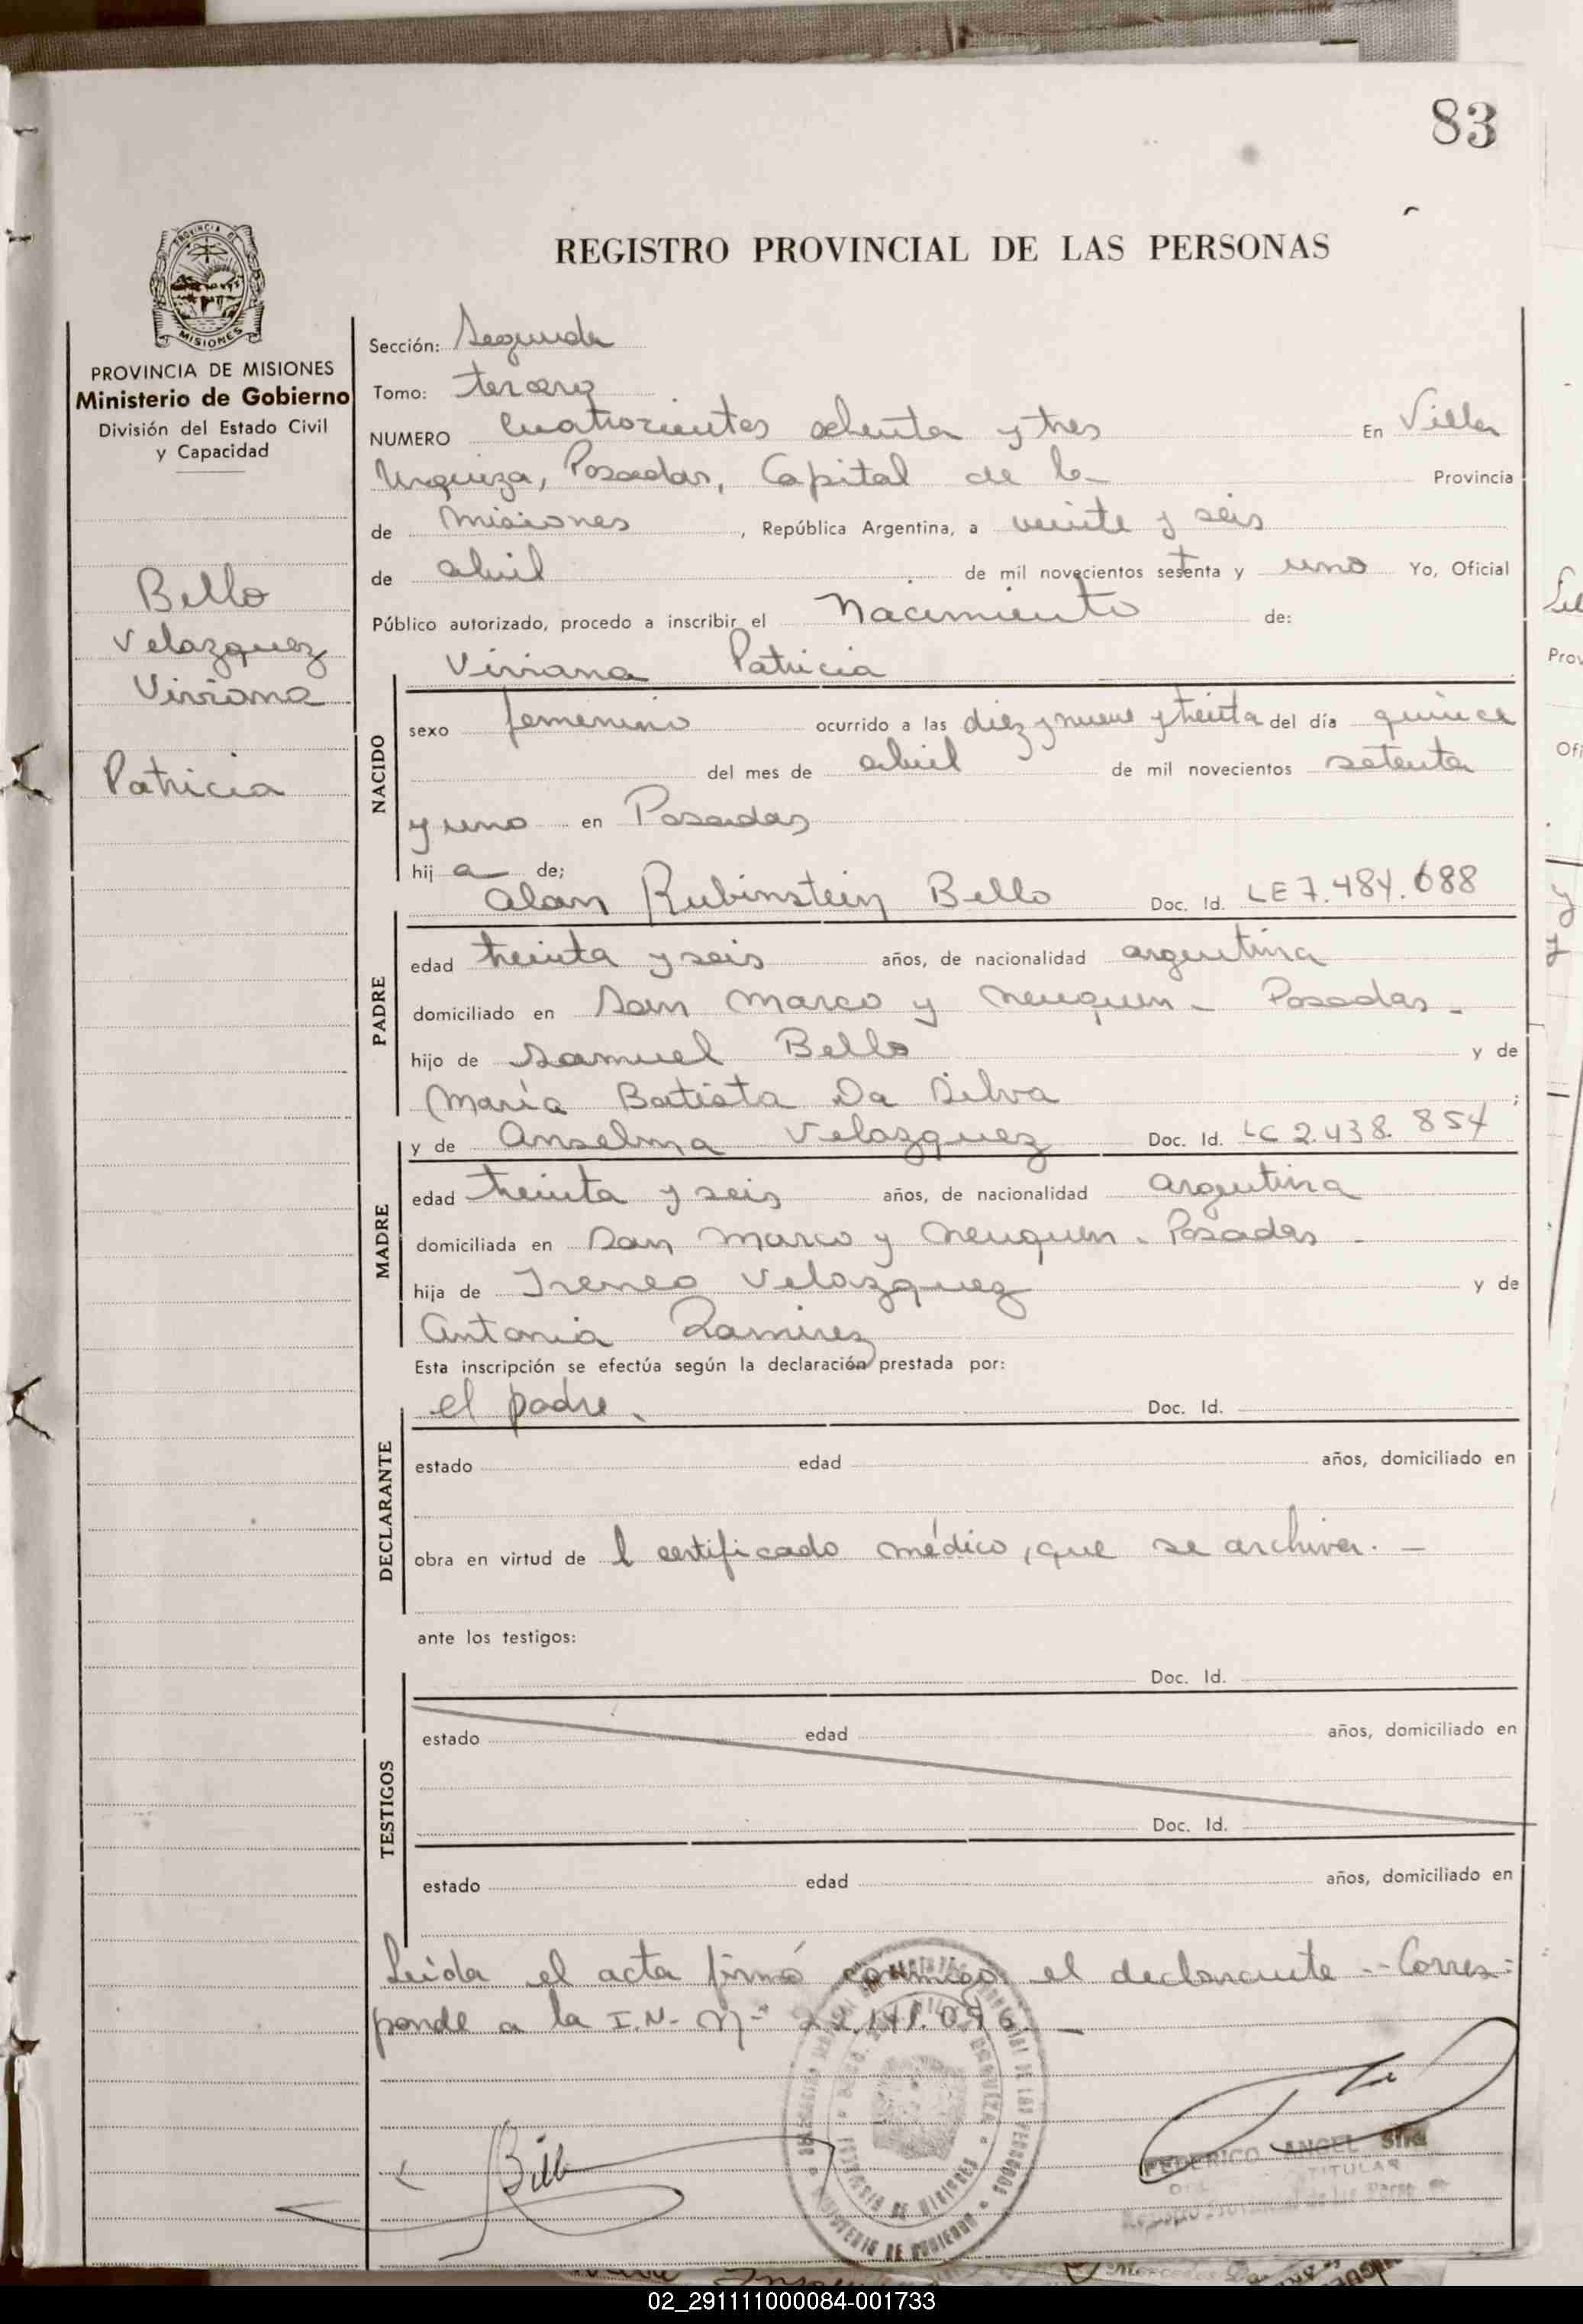 83
REGISTRO PROVINCIAL DE LAS PERSONAS
PROVINCIA DE
MISIONES
PROVINCIA DE MISIONES
Ministerio de Gobierno
División del Estado Civil
y Capacidad
Bello
Velazquez
Viviana
Patricia
Sección: Segunda
Tomo: tercero
NUMERO cuatrocientos ochenta y tres En Villa
Urquiza, Posadas, Capital de la Provincia
de Misiones, República Argentina, a veinte y seis
de abril de mil novecientos setenta y uno Yo, Oficial
Público autorizado, procedo a inscribir el Nacimiento de:
Viviana Patricia
NACIDO
sexo femenino ocurrido a las diez y nueve y treinta del día quince
del mes de abril de mil novecientos setenta
y uno en Posadas
hija de;
Alan Rubinstein Bello Doc. Id. LE 7.484.688
PADRE
edad treinta y seis años, de nacionalidad argentina
domiciliado en San Marco y Neuquen - Posadas -
hijo de Samuel Bello y de
María Batista Da Silva ;
y de Anselma Velazquez Doc. Id. LC 2.438.854
MADRE
edad treinta y seis años, de nacionalidad argentina
domiciliada en San Marco y Neuquen - Posadas -
hija de Ireneo Velazquez y de
Antonia Ramirez
Esta inscripción se efectúa según la declaración prestada por:
el padre. Doc. Id.
DECLARANTE
estado edad años, domiciliado en
obra en virtud de l certificado médico, que se archiva. -
ante los testigos:
Doc. Id.
TESTIGOS
estado edad años, domiciliado en
Doc. Id.
estado edad años, domiciliado en
Leida el acta firmó conmigo el declarante -- Corres=
ponde a la I.N. Nº 22.141.096. -
Bello
FEDERICO ANGEL
TITULAR
PROVINCIA DE MISIONES
MINISTERIO DE GOBIERNO
02_291111000084-001733